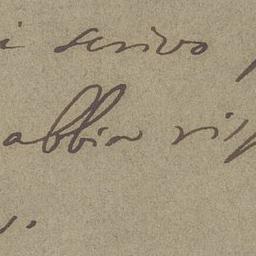 i scrivo
abbia risp